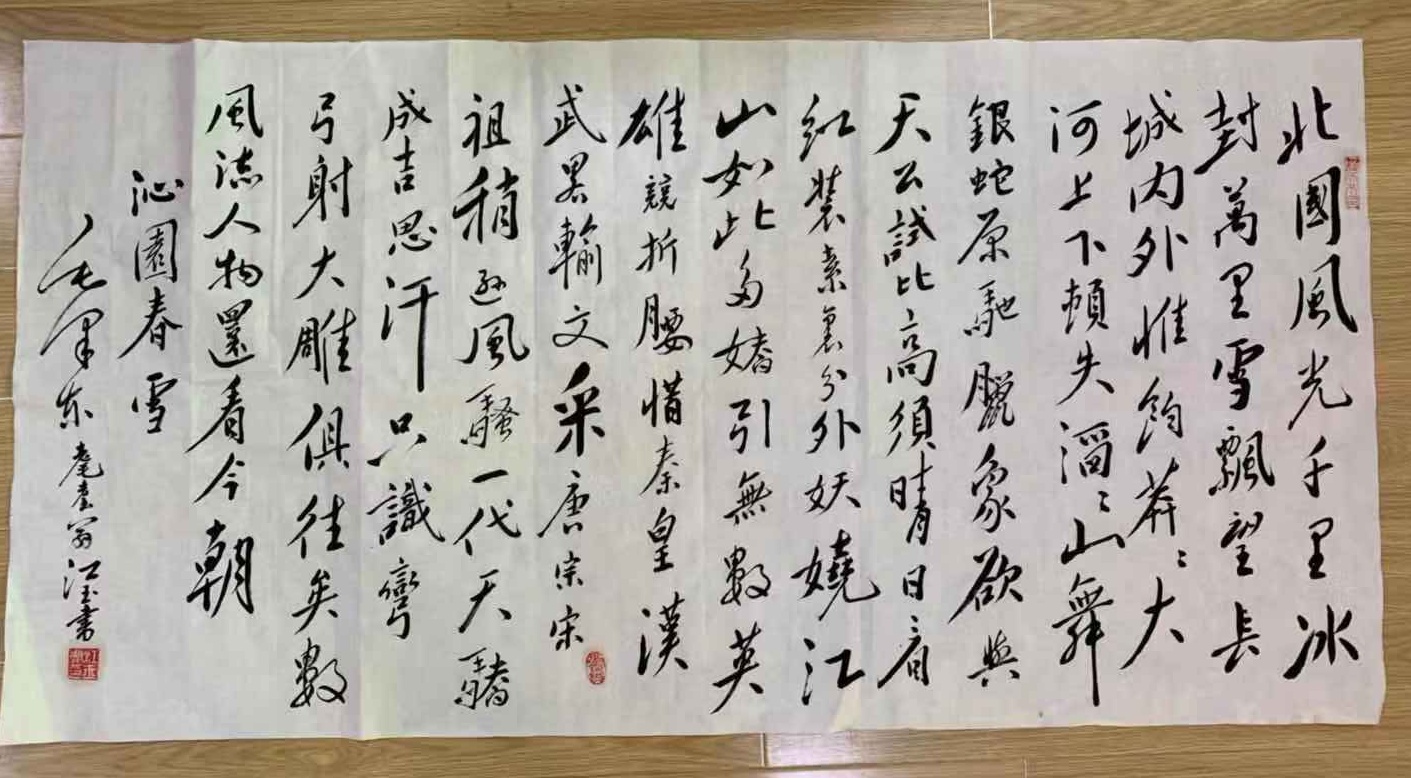 北國風光千里冰
封萬里雪飄望長
城内外惟餘莽〻大
河上下頓失滔〻山舞
銀蛇原馳臘象欲與
天公試比高須晴日看
紅裝素裹分外妖嬈江
山如此多嬌引無數英
雄競折腰惜秦皇漢
武畧輸文采唐宗宋
祖稍遜風騷一代天驕
成吉思汗只識彎
弓射大雕俱往矣數
風流人物還看今朝
沁園春雪
毛澤東 耄耋翁江玉書